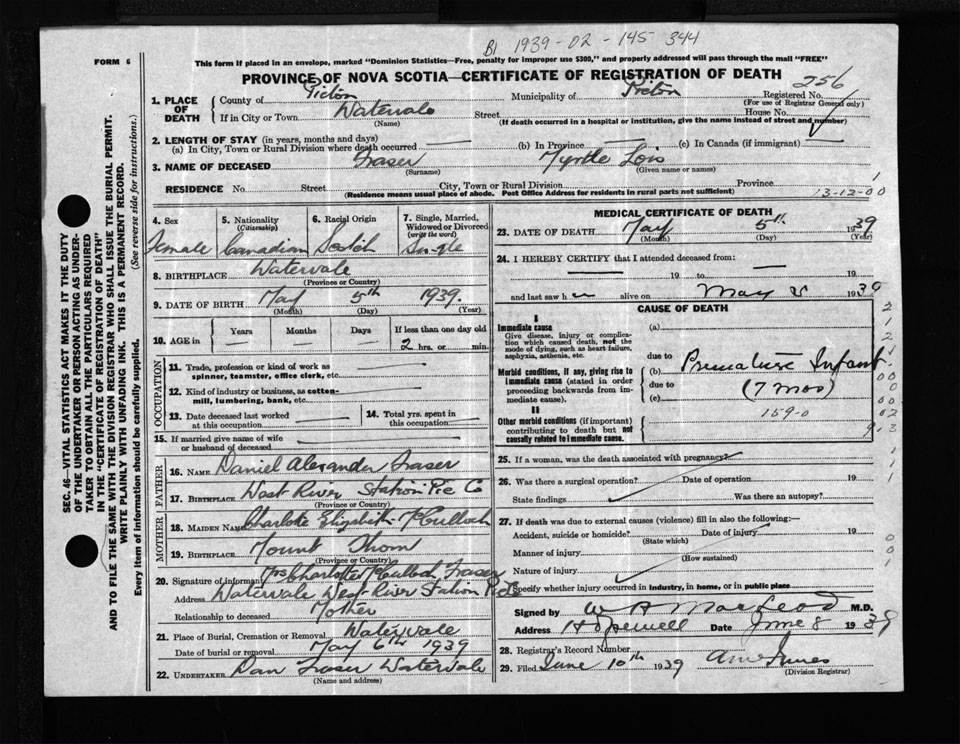 B1 1939-02-145 344
FORM 6
This form if placed in an envelope, marked "Dominion Statistics—Free, penalty for improper use $300," and properly addressed will pass through the mail "FREE"
PROVINCE OF NOVA SCOTIA—CERTIFICATE OF REGISTRATION OF DEATH
256
1. PLACE OF DEATH County of Pictou Municipality of Pictou Registered No.
(For use of Registrar General only)
If in City or Town Watervale Street House No.
(Name) (If death occurred in a hospital or institution, give the name instead of street and number)
2. LENGTH OF STAY (in years, months and days)
(a) In City, Town or Rural Division where death occurred — (b) In Province — (c) In Canada (if immigrant) —
3. NAME OF DECEASED Fraser Myrtle Lois
(Surname) (Given name or names)
RESIDENCE No. Street City, Town or Rural Division Province 1
(Residence means usual place of abode. Post Office Address for residents in rural parts not sufficient) 13-12-00
SEC. 46—VITAL STATISTICS ACT MAKES IT THE DUTY
OF THE UNDERTAKER OR PERSON ACTING AS UNDER-
TAKER TO OBTAIN ALL THE PARTICULARS REQUIRED
IN THE "CERTIFICATE OF REGISTRATION OF DEATH"
AND TO FILE THE SAME WITH THE DIVISION REGISTRAR WHO SHALL ISSUE THE BURIAL PERMIT.
WRITE PLAINLY WITH UNFADING INK. THIS IS A PERMANENT RECORD.
Every item of information should be carefully supplied. (See reverse side for instructions.)
4. Sex 5. Nationality (Citizenship) 6. Racial Origin 7. Single, Married, Widowed or Divorced (write the word)
Female Canadian Scotch Single
8. BIRTHPLACE Watervale
(Province or Country)
9. DATE OF BIRTH May 5th 1939.
(Month) (Day) (Year)
10. AGE in Years Months Days If less than one day old
— — — 2 hrs. or min.
OCCUPATION
11. Trade, profession or kind of work as
spinner, teamster, office clerk, etc. —
12. Kind of industry or business, as cotton-
mill, lumbering, bank, etc. —
13. Date deceased last worked at this occupation — 14. Total yrs. spent in this occupation —
15. If married give name of wife
or husband of deceased —
FATHER
16. NAME Daniel Alexander Fraser
17. BIRTHPLACE West River Station Pic Co
(Province or Country)
MOTHER
18. MAIDEN NAME Charlotte Elizabeth McCulloch
19. BIRTHPLACE Mount Thom
(Province or Country)
20. Signature of informant Mrs Charlotte McCulloch Fraser
Address Watervale West River Station Pict
Relationship to deceased Mother
21. Place of Burial, Cremation or Removal Watervale
Date of burial or removal May 6th 1939
22. UNDERTAKER Dan Fraser Watervale
(Name and address)
MEDICAL CERTIFICATE OF DEATH
23. DATE OF DEATH May 5th 1939
(Month) (Day) (Year)
24. I HEREBY CERTIFY that I attended deceased from:
— 19 to — 19
and last saw her alive on May 5 1939
CAUSE OF DEATH
I
Immediate cause (a)
Give disease, injury or complication which caused death, not the mode of dying, such as heart failure, asphyxia, asthenia, etc.
due to
Morbid conditions, if any, giving rise to immediate cause (stated in order proceeding backwards from immediate cause). (b) Premature Infant
due to (7 mos)
(c)
II
Other morbid conditions (if important) contributing to death but not causally related to immediate cause. 159-0
25. If a woman, was the death associated with pregnancy?
26. Was there a surgical operation? Date of operation 19
State findings Was there an autopsy?
27. If death was due to external causes (violence) fill in also the following:—
Accident, suicide or homicide? Date of injury 19
(State which)
Manner of injury
(How sustained)
Nature of injury
Specify whether injury occurred in industry, in home, or in public place
Signed by W A MacLeod M.D.
Address Hopewell Date June 8 1939
28. Registrar's Record Number
29. Filed June 10th 1939
(Division Registrar)